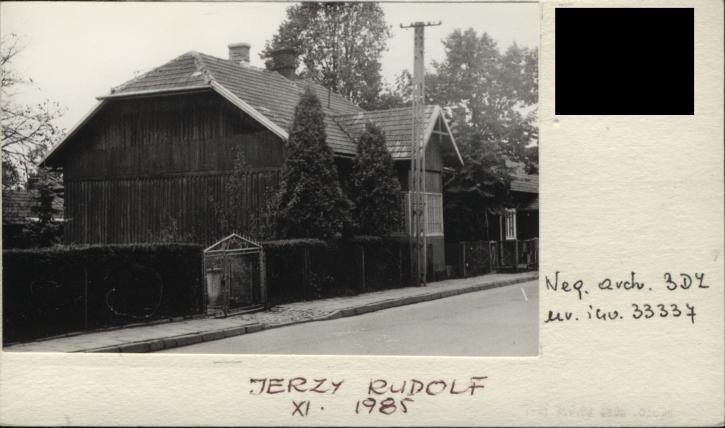 Neg. arch. 3DZ
nr. inw. 33337
JERZY RUDOLF
XI. 1985